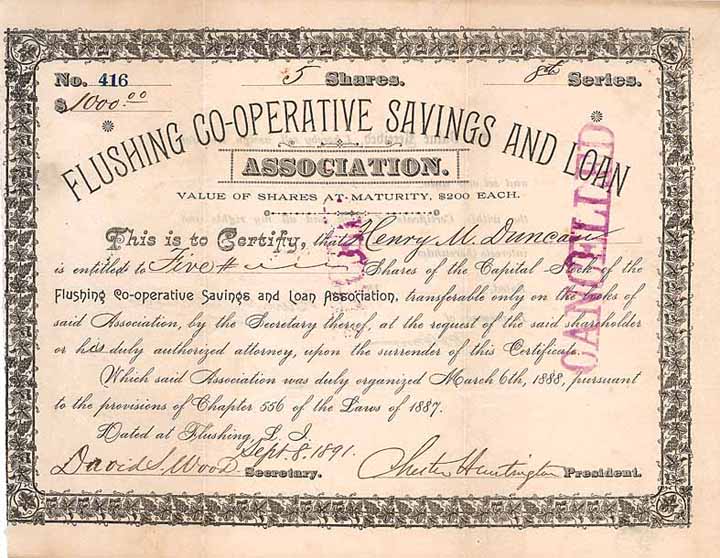 No. 416 5 Shares. 8th Series.
$1000.00
FLUSHING CO-OPERATIVE SAVINGS AND LOAN
ASSOCIATION.
VALUE OF SHARES AT MATURITY, $200 EACH.
This is to Certify, that Henry M. Duncan
is entitled to Five Shares of the Capital Stock of the
Flushing Co-operative Savings and Loan Association, transferable only on the books of
said Association, by the Secretary thereof, at the request of the said shareholder
or his duly authorized attorney, upon the surrender of this Certificate.
Which said Association was duly organized March 6th, 1888, pursuant
to the provisions of Chapter 556 of the Laws of 1887.
Dated at Flushing, L. I.
Sept. 8. 1891.
David S. Wood Secretary. Huntington President.
CANCELLED